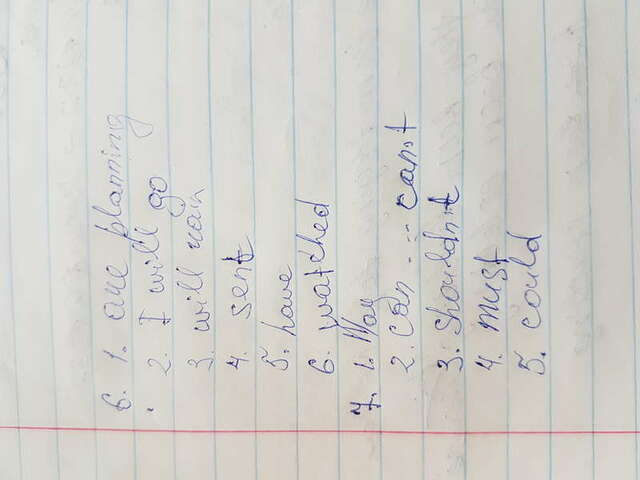 6. 1. are planning
2. I will go
3. will rain
4. sent
5. have
6. watched
7. 1. May
2. can --- can't
3. shouldn't
4. must
5. could